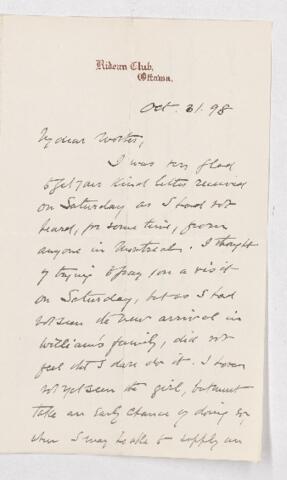 Rideau Club,
Ottawa.
Oct. 31. 98
My dear
I was very glad
to get your kind letter received
on Saturday as I had not
heard, for some time, from
anyone in Montreal. I thought
of trying to pay you a visit
on Saturday, but as I had
not seen the new arrival in
William's family, did not
feel that I dare do it. I have
not yet seen the girl, but must
take an early chance of doing so,
when I may be able to supply an